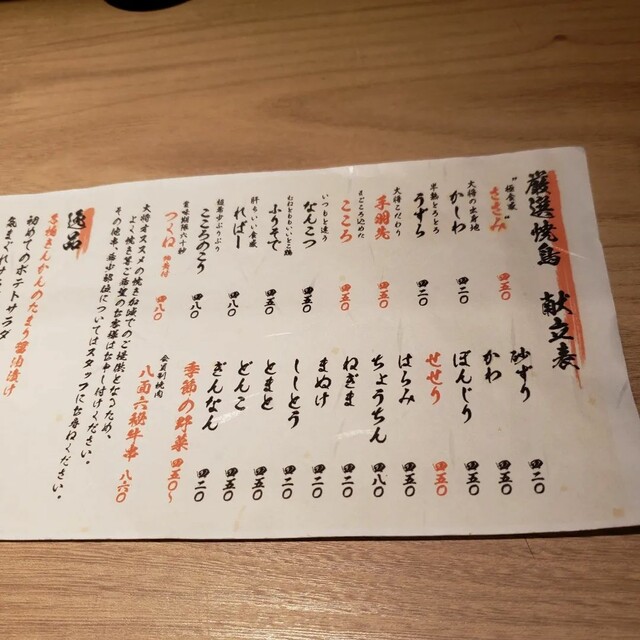 厳選焼鳥 献立表
"極食感"
ささみ 四五〇
大将の出身地
かしわ 四二〇
半熟とろとろ
うずら 四二〇
大将こだわり
手羽先 四五〇
まごころ込めた
こころ 四五〇
いつもと違う
なんこつ 四五〇
ふりそで 四五〇
肝もいい食感
ればー 四八〇
極希少ぷりぷり
こころのこり 四八〇
賞味期限六十秒
つくね 四八〇
砂ずり 四二〇
かわ 四五〇
ぼんじり 四五〇
せせり 四五〇
はらみ 四五〇
ちょうちん 四八〇
ねぎま 四五〇
まぬけ 四二〇
ししとう 四二〇
とまと 四五〇
どんこ 四五〇
ぎんなん 四二〇
季節の野菜 四五〇〜
会員制焼肉
八面六秘牛串 八六〇
大将オススメの焼き加減でのご提供となっため、
よく焼き等ご希望のお客様はお申し付けください。
その他串、希少部位についてはスタッフにお尋ねください。
逸品
初めてのポテトサラダ
気まぐれサラダ